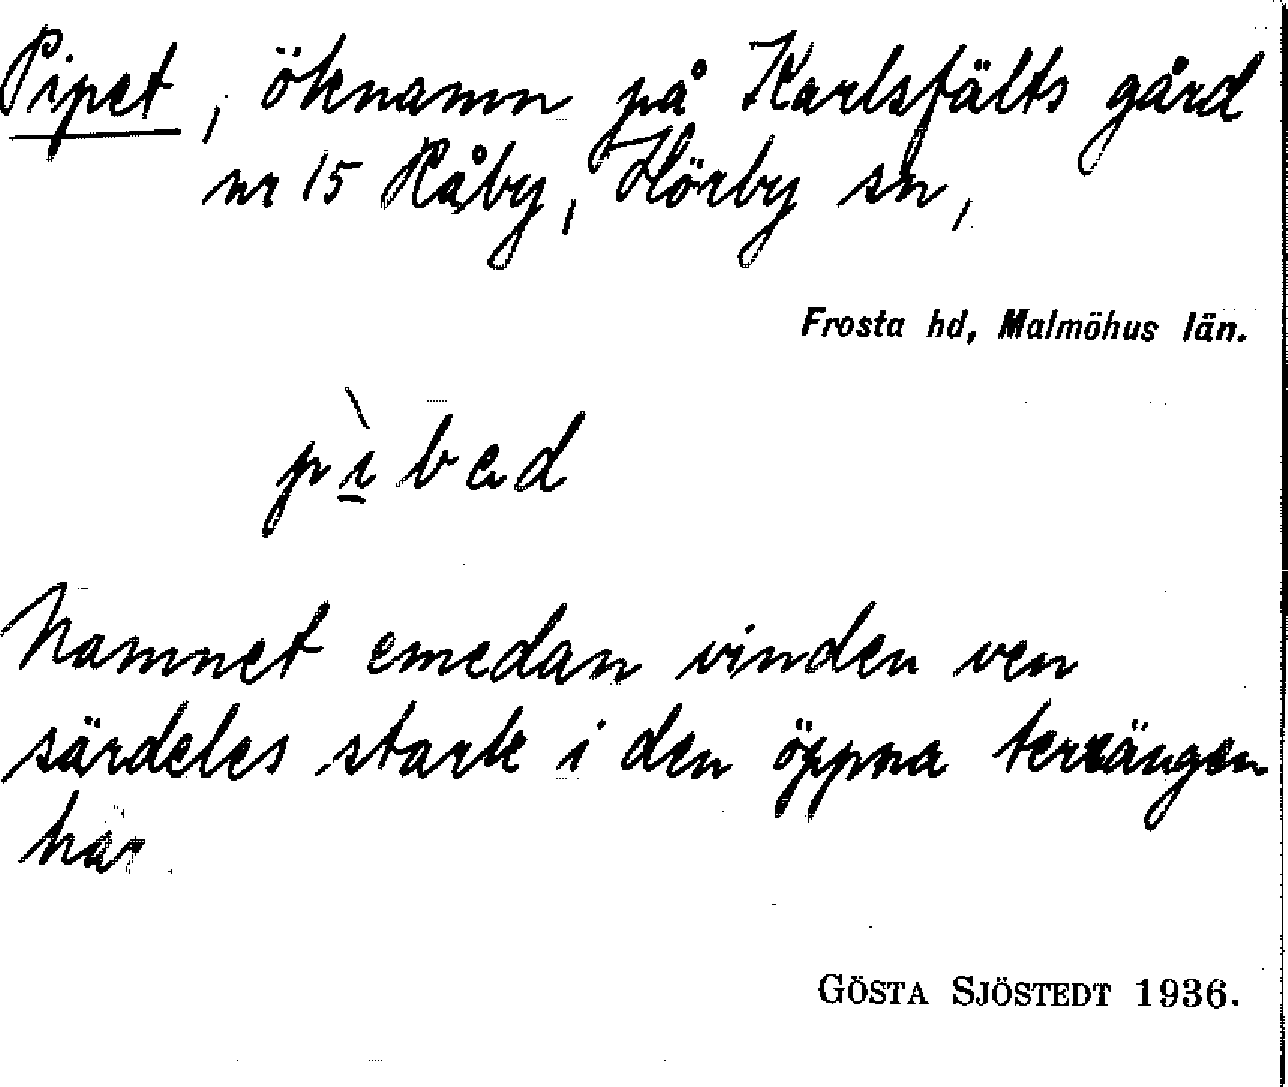 Pipet, öknamn på Karlsfälts gård
nr 15 Råby, Hörby sn,
Frosta hd, Malmöhus län.
pìbad
Namnet emedan vinden ven
särdeles stark i den öppna terrängen
här.
GÖSTA SJÖSTEDT 1936.